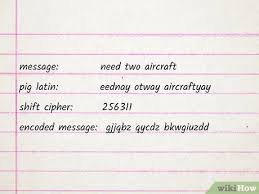 message: need two aircraft
pig latin: eednay otway aircraftyay
shift cipher: 256311
encoded message: gjjqbz qycdz bkwgiuzdd
wikiHow